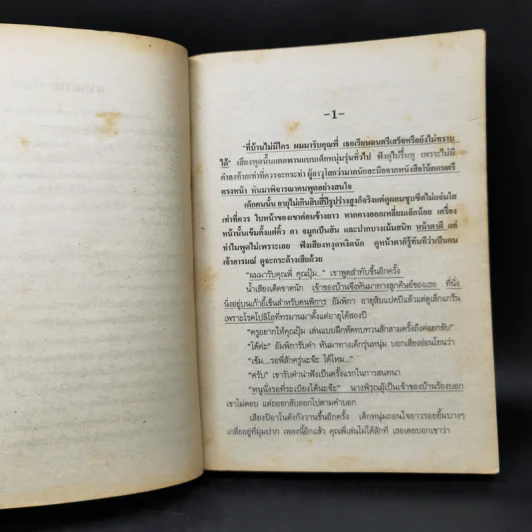 -1-
"ที่บ้านไม่มีใคร ผมมารับคุณพี่ เธอเรียนดนตรีเสร็จหรือยังไม่ทราบ
ได้" เสียงพูดนั้นแตกพานแบบเด็กหนุ่มรุ่นทั่วไป ฟังดูไม่รื่นหู เพราะไม่มี
คำลงท้ายเท่าที่ควรจะกระทำ ผู้อาวุโสกว่ามากนักละมือจากหนังสือโน้ตดนตรี
ตรงหน้า หันมาพิจารณาคนพูดอย่างสนใจ
เด็กคนนั้น อายุไม่เกินสิบสี่ปีรูปร่างสูงก็จริงแต่ดูผอมซูบซีดไม่แจ่มใส
เท่าที่ควร ใบหน้าของเขาค่อนข้างยาว หากคางออกเหลี่ยมเล็กน้อย เครื่อง
หน้านั้นเข้มตั้งแต่คิ้ว ตา จมูกเป็นสัน และปากบางเม้มสนิท หน้าตาดี แต่
ทำไมพูดไม่เพราะเลย ฟังเสียงหงุดหงิดนัก ดูหน้าตาก็รู้ทันทีว่าเป็นคน
เจ้าอารมณ์ ดูจะกระด้างเสียด้วย
"ผมมารับคุณพี่ คุณปุ้ม..." เขาพูดสำทับขึ้นอีกครั้ง
น้ำเสียงเด็ดขาดนัก เจ้าของบ้านจึงหันมาทางลูกศิษย์ของเธอ ที่นั่ง
นิ่งอยู่บนเก้าอี้เข็นสำหรับคนพิการ อัมพิกา อายุสิบแปดปีแล้วแต่ดูเล็กแกร็น
เพราะโรคโปลิโอที่ทรมานมาตั้งแต่อายุได้สองปี
"ครูอยากให้คุณปุ้ม เล่นแบบฝึกหัดทบทวนสักสามครั้งถึงค่อยกลับ"
"ได้ค่ะ" อัมพิการับคำ หันมาทางเด็กรุ่นหนุ่ม บอกเสียงอ่อนโยนว่า
"เข้ม...รอพี่สักครู่นะจ๊ะ ได้ไหม..."
"ครับ" เขารับคำน่าฟังเป็นครั้งแรกในการสนทนา
"หนูนั่งรอที่ระเบียงได้นะจ๊ะ" นางพิรุณผู้เป็นเจ้าของบ้านร้องบอก
เขาไม่ตอบ แต่ถอยกลับออกไปตามคำบอก
เสียงปิอาโนดังกังวานขึ้นอีกครั้ง เด็กหนุ่มถอนใจยาวรอยยิ้มบางๆ
เกลื่อนอยู่ที่มุมปาก เพลงนี้อีกแล้ว คุณพี่เล่นไม่ได้สักที เธอเคยบอกเขาว่า